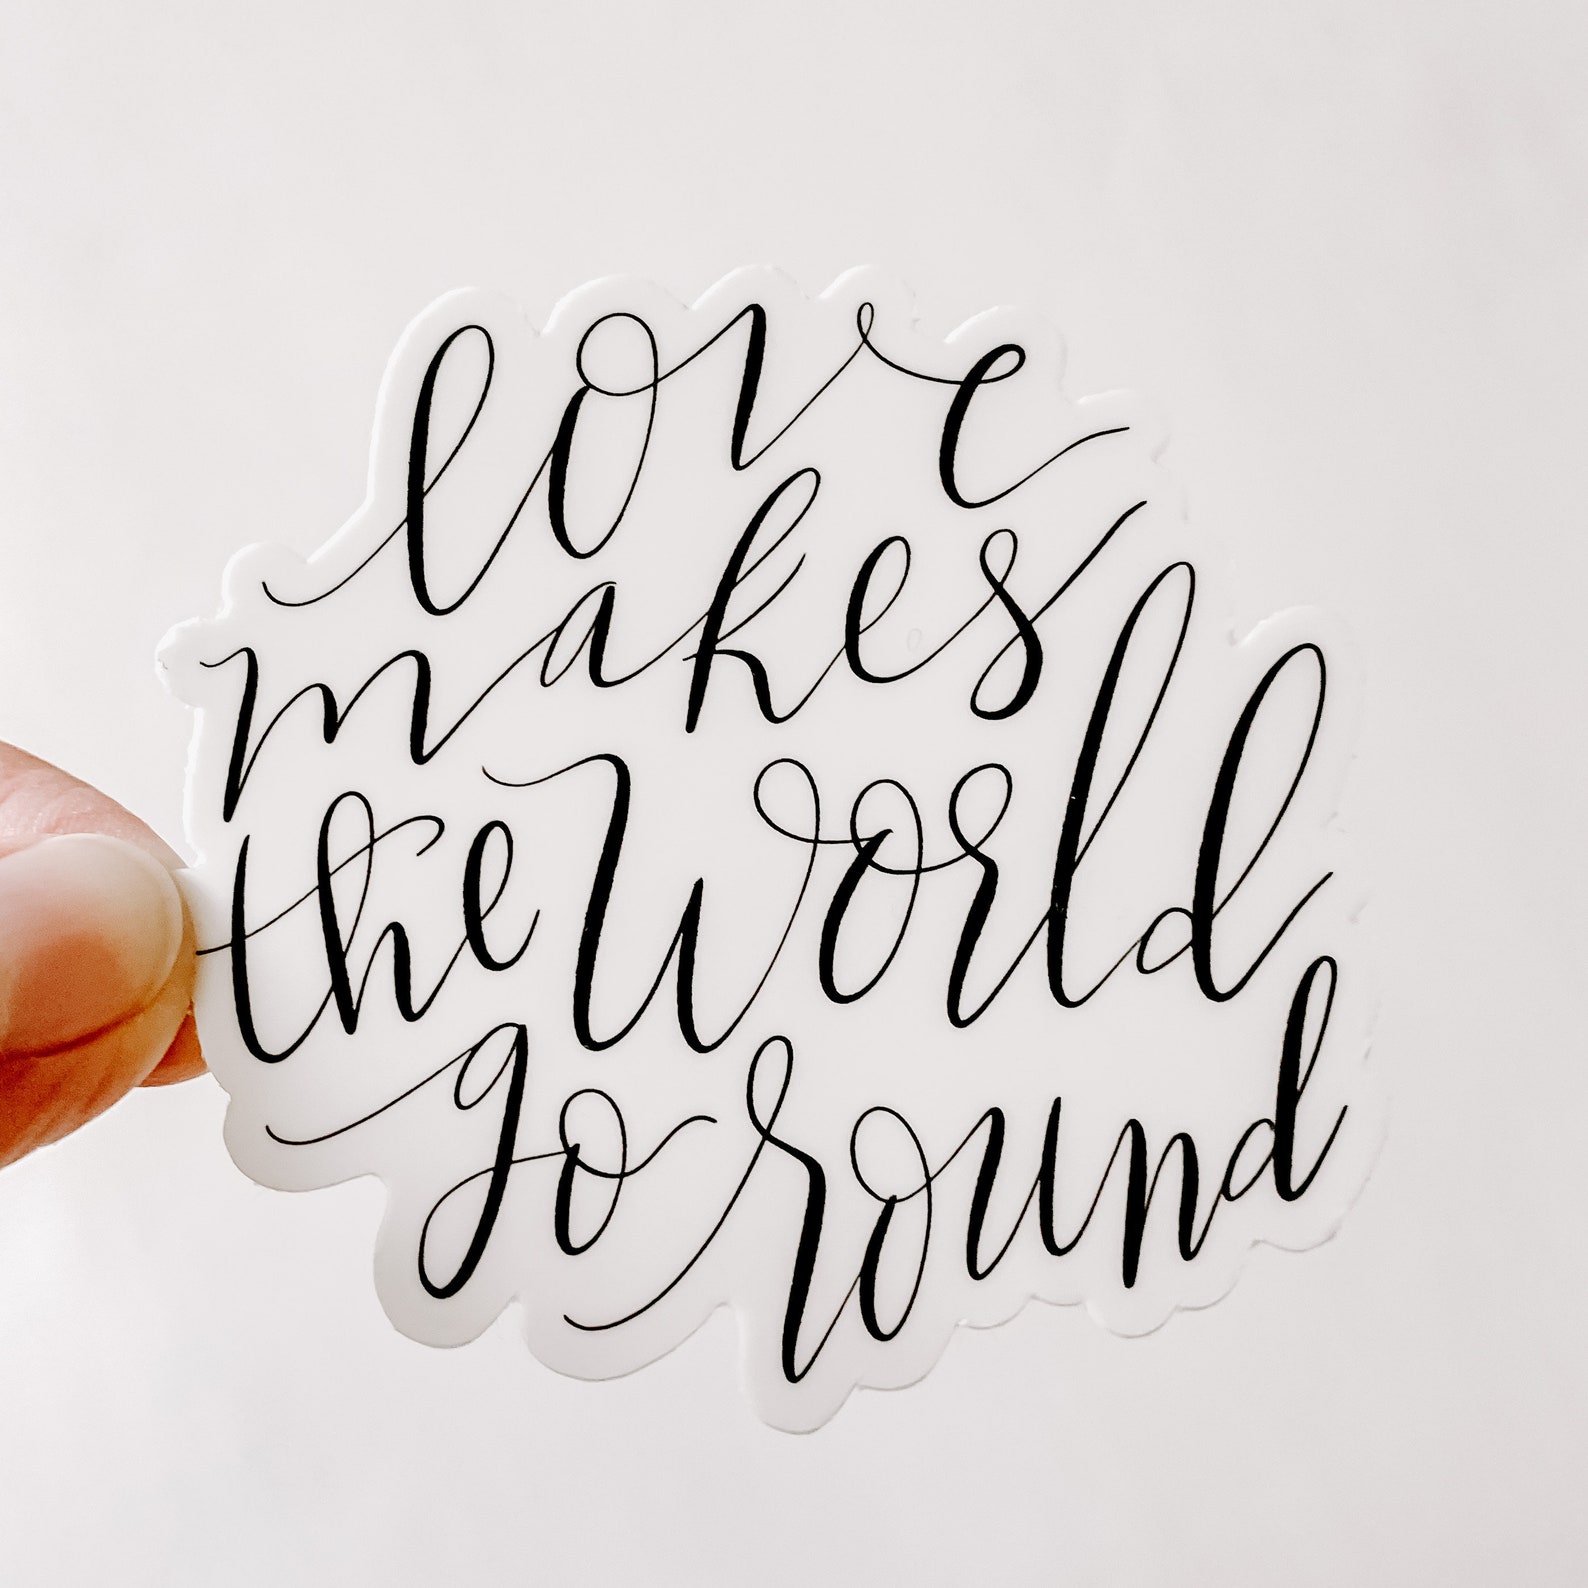 love
makes
the world
go round